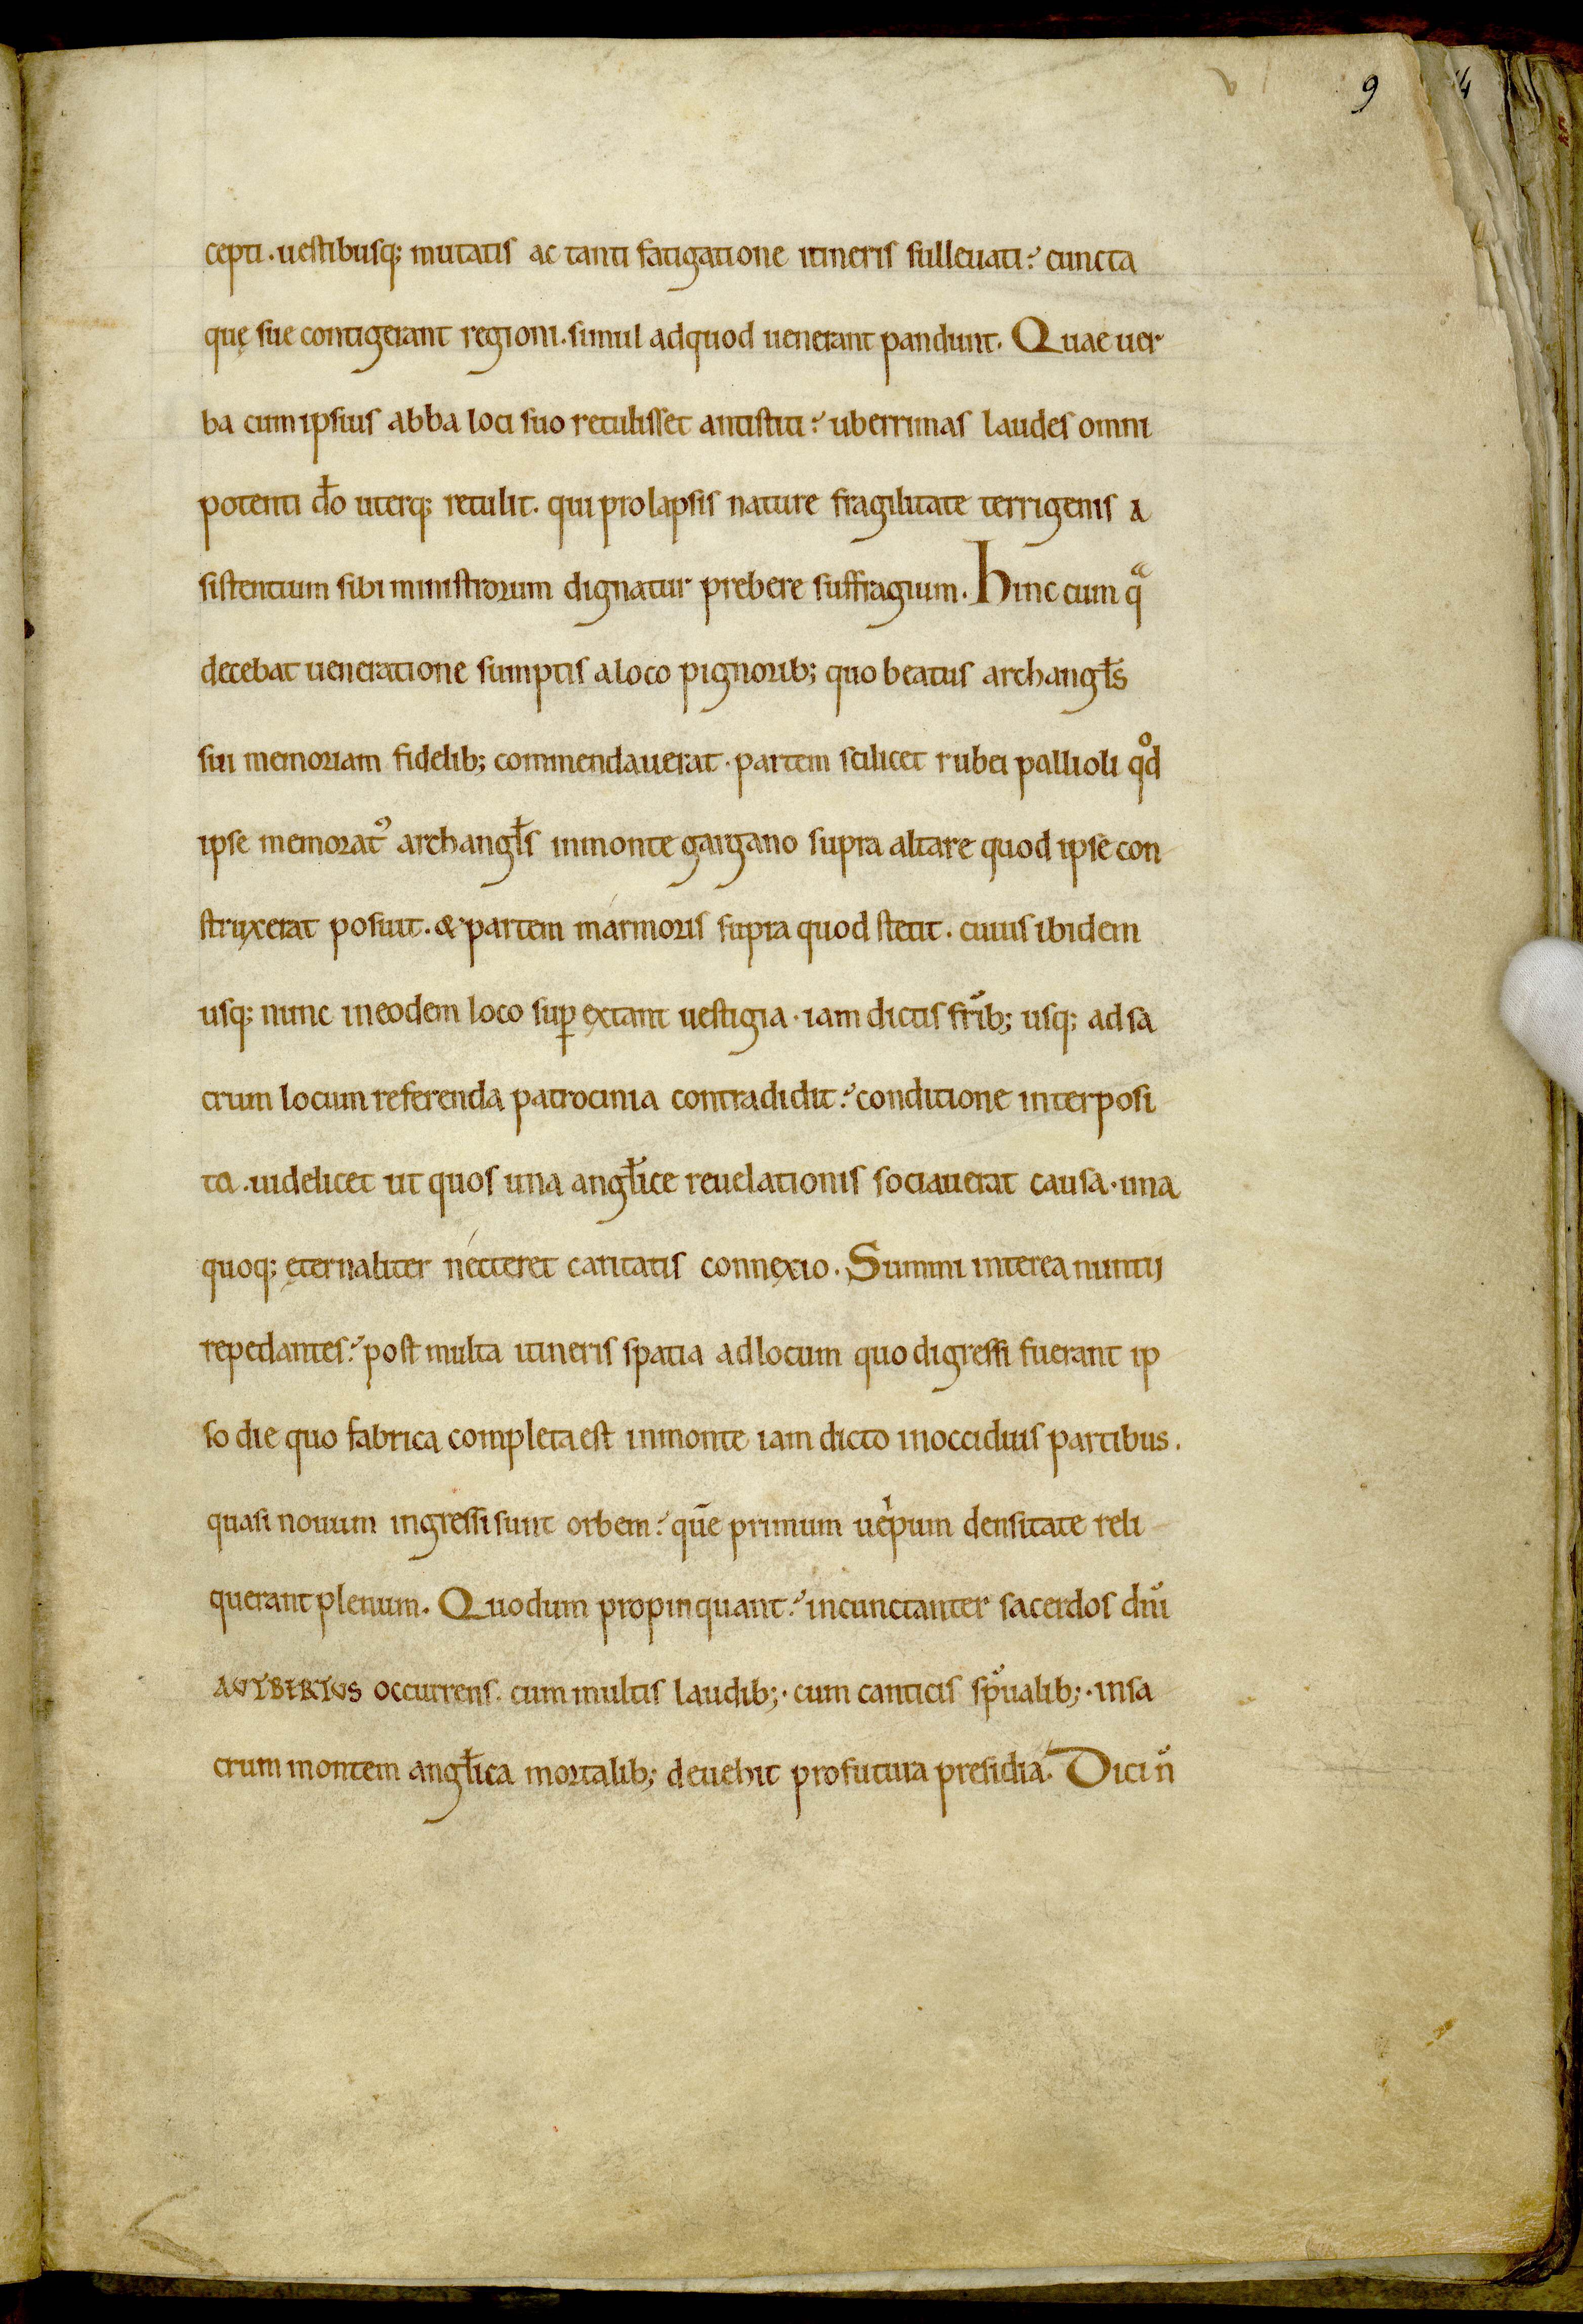 9 4
cepti. uestibusq; mutatis ac tanti fatigatione itineris sulleuati? cuncta
quę sue contigerant regioni. simul adquod uenerant pandunt. Quae uer
ba cum ipsius abba loci suo retulisset antistiti? uberrimas laudes omni
potenti do̅ uterq; retulit. qui prolapsis nature fragilitate terrigenis a
sistentium sibi ministrorum dignatur prebere suffragium. Hinc cum qͣ
decebat ueneratione sumptis a loco pignorib; quo beatus archangl̅s
sui memoriam fidelib; commendauerat. partem scilicet rubei pallioli qͦd
ipse memorat᾽ archangl̅s inmonte gargano supra altare quod ipse con
struxerat posuit. & partem marmoris supra quod stetit. cuius ibidem
usq; nunc ineodem loco suꝑ extant uestigia. iam dictis fr̅ib; usq; ad sa
crum locum referenda patrocinia contradidit? conditione interposi
ta. uidelicet ut quos una angl̅ice reuelationis sociauerat causa. una
quoq; ęternaliter necteret caritatis connexio. Summi interea nuntii
repedantes? post multa itineris spatia adlocum quo digressi fuerant ip
so die quo fabrica completa est inmonte iam dicto inoccidiuis partibus.
quasi nouum ingressi sunt orbem? que̅ primum uep̍ium densitate reli
querant plenum. Quo dum propinquant? incunctanter sacerdos dn̅i
AUTBERTUS occurrens. cum multis laudib;. cum canticis sp̅ualib;. insa
crum montem angl̅ica mortalib; deuehit profutura presidia. Dici n̅